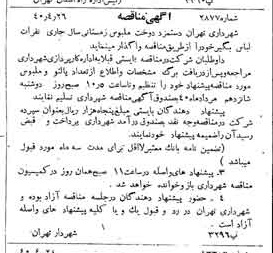 شماره۲۸۷۷ آگهی مناقصه ۴۰٫۴٫۲۶
شهرداری تهران دستمزد دوخت ملبوس زمستانی سال جاری نفرات
لباس بگیر خود را از طریق مناقصه واگذار مینماید
داوطلبان شرکت در مناقصه بایستی قبلا باداره کارپردازی شهرداری
مراجعه و پس از دریافت برگ مشخصات و اطلاع از تعداد پالتو و ملبوس
مورد مناقصه پیشنهاد خود را تنظیم و تا ساعت ۱۰٫۵ صبح روز دوشنبه
شانزدهم مرداد ماه ۴۰ بصندوق آگهی مناقصه شهرداری تسلیم نمایند
پیشنهاد دهندگان بایستی مبلغ پنجاه هزار ریال بعنوان سپرده
شرکت در مناقصه وجه نقد بصندوق درآمد شهرداری پرداخت و قبض
رسید آن را ضمیمه پیشنهاد خود نمایند.
(تضمین نامه بانک معتبر لااقل برای مدت سه ماه مورد قبول
میباشد )
۳ـ پیشنهاد های واصله در ساعت ۱۱ صبح همان روز در کمیسیون
مناقصه شهرداری باز و خوانده خواهد شد.
۴ ـ حضور پیشنهاد دهندگان در جلسه مناقصه آزاد بوده و
شهرداری تهران در رد و قبول یک و یا کلیه پیشنهاد های واصله
آزاد است .
پ۳۲۹۶ شهردار تهران